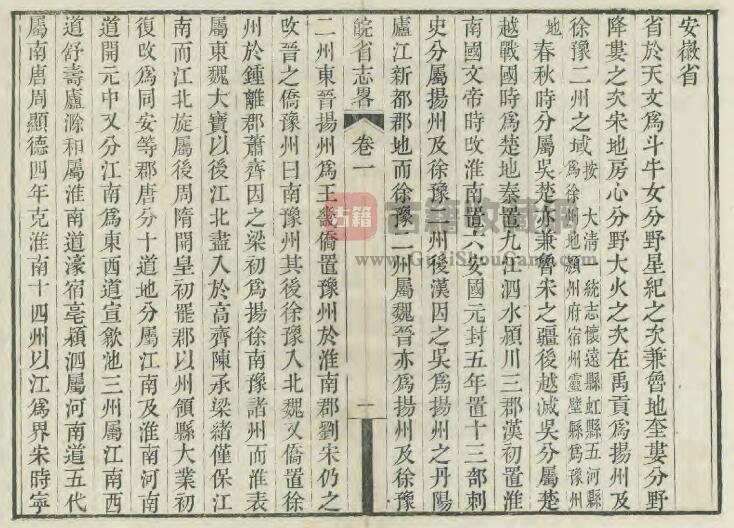 安徽省
省於天文為斗牛女分野星紀之次兼魯地奎婁分野
降婁之次宋地房心分野大火之次在禹貢為揚州及
徐豫二州之域按大清一統志懷遠縣虹縣五河縣
為徐州地潁州府宿州靈壁縣為豫州
地春秋時分屬吳楚亦兼魯宋之疆後越滅吳分屬楚
越戰國時為楚地秦置九江泗水潁川三郡漢初置淮
南國文帝時改淮南置六安國元封五年置十三部刺
史分屬揚州及徐豫二州後漢因之吳為揚州之丹陽
廬江新都郡地而徐豫二州屬魏晉亦為揚州及徐豫
皖省志畧
卷一
一
二州東晉揚州為王畿僑置豫州於淮南郡劉宋仍之
改晉之僑豫州曰南豫州其後徐豫入北魏又僑置徐
州於鍾離郡蕭齊因之梁初為揚徐南豫諸州而淮表
屬東魏大寶以後江北盡入於高齊陳承梁緒僅保江
南而江北旋屬後周隋開皇初罷郡以州領縣大業初
復改為同安等郡唐分十道地分屬江南及淮南河南
道開元中又分江南為東西道宣歙池三州屬江南西
道舒壽廬滁和屬淮南道濠宿亳潁泗屬河南道五代
屬南唐周顯德四年克淮南十四州以江為界宋時寧
古籍
古籍收藏網
www.GujiShouCang.com